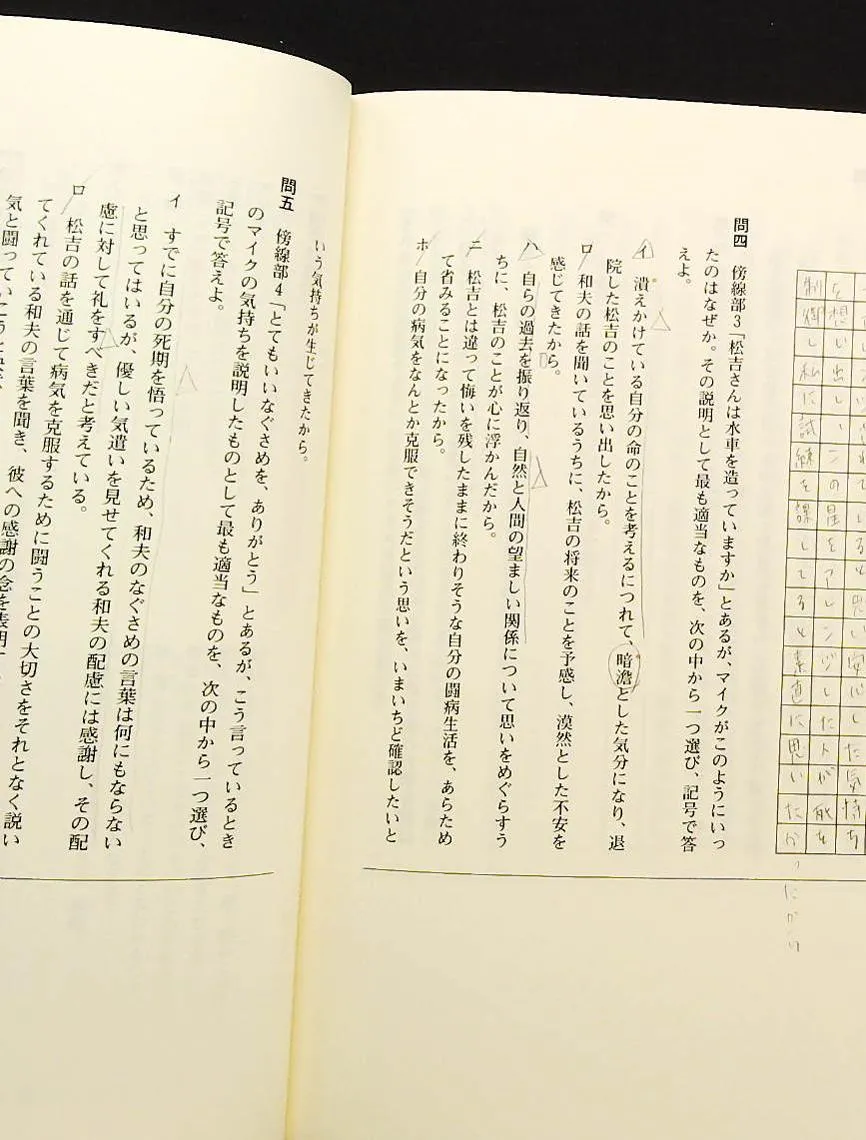 問四　傍線部3「松吉さんは水車を造っていますか」とあるが、マイクがこのようにいっ
たのはなぜか。その説明として最も適当なものを、次の中から一つ選び、記号で答
えよ。
イ　潰えかけている自分の命のことを考えるにつれて、暗澹とした気分になり、退
院した松吉のことを思い出したから。
ロ　和夫の話を聞いているうちに、松吉の将来のことを予感し、漠然とした不安を
感じてきたから。
ハ　自らの過去を振り返り、自然と人間の望ましい関係について思いをめぐらすう
ちに、松吉のことが心に浮かんだから。
ニ　松吉とは違って悔いを残したままに終わりそうな自分の闘病生活を、あらため
て省みることになったから。
ホ　自分の病気をなんとか克服できそうだという思いを、いまいちど確認したいと
いう気持ちが生じてきたから。
問五　傍線部4「とてもいいなぐさめを、ありがとう」とあるが、こう言っているとき
のマイクの気持ちを説明したものとして最も適当なものを、次の中から一つ選び、
記号で答えよ。
イ　すでに自分の死期を悟っているため、和夫のなぐさめの言葉は何にもならない
と思ってはいるが、優しい気遣いを見せてくれる和夫の配慮には感謝し、その配
慮に対して礼をすべきだと考えている。
ロ　松吉の話を通じて病気を克服するために闘うことの大切さをそれとなく説い
てくれている和夫の言葉を聞き、彼への感謝の念を表明
気と闘っていこうと